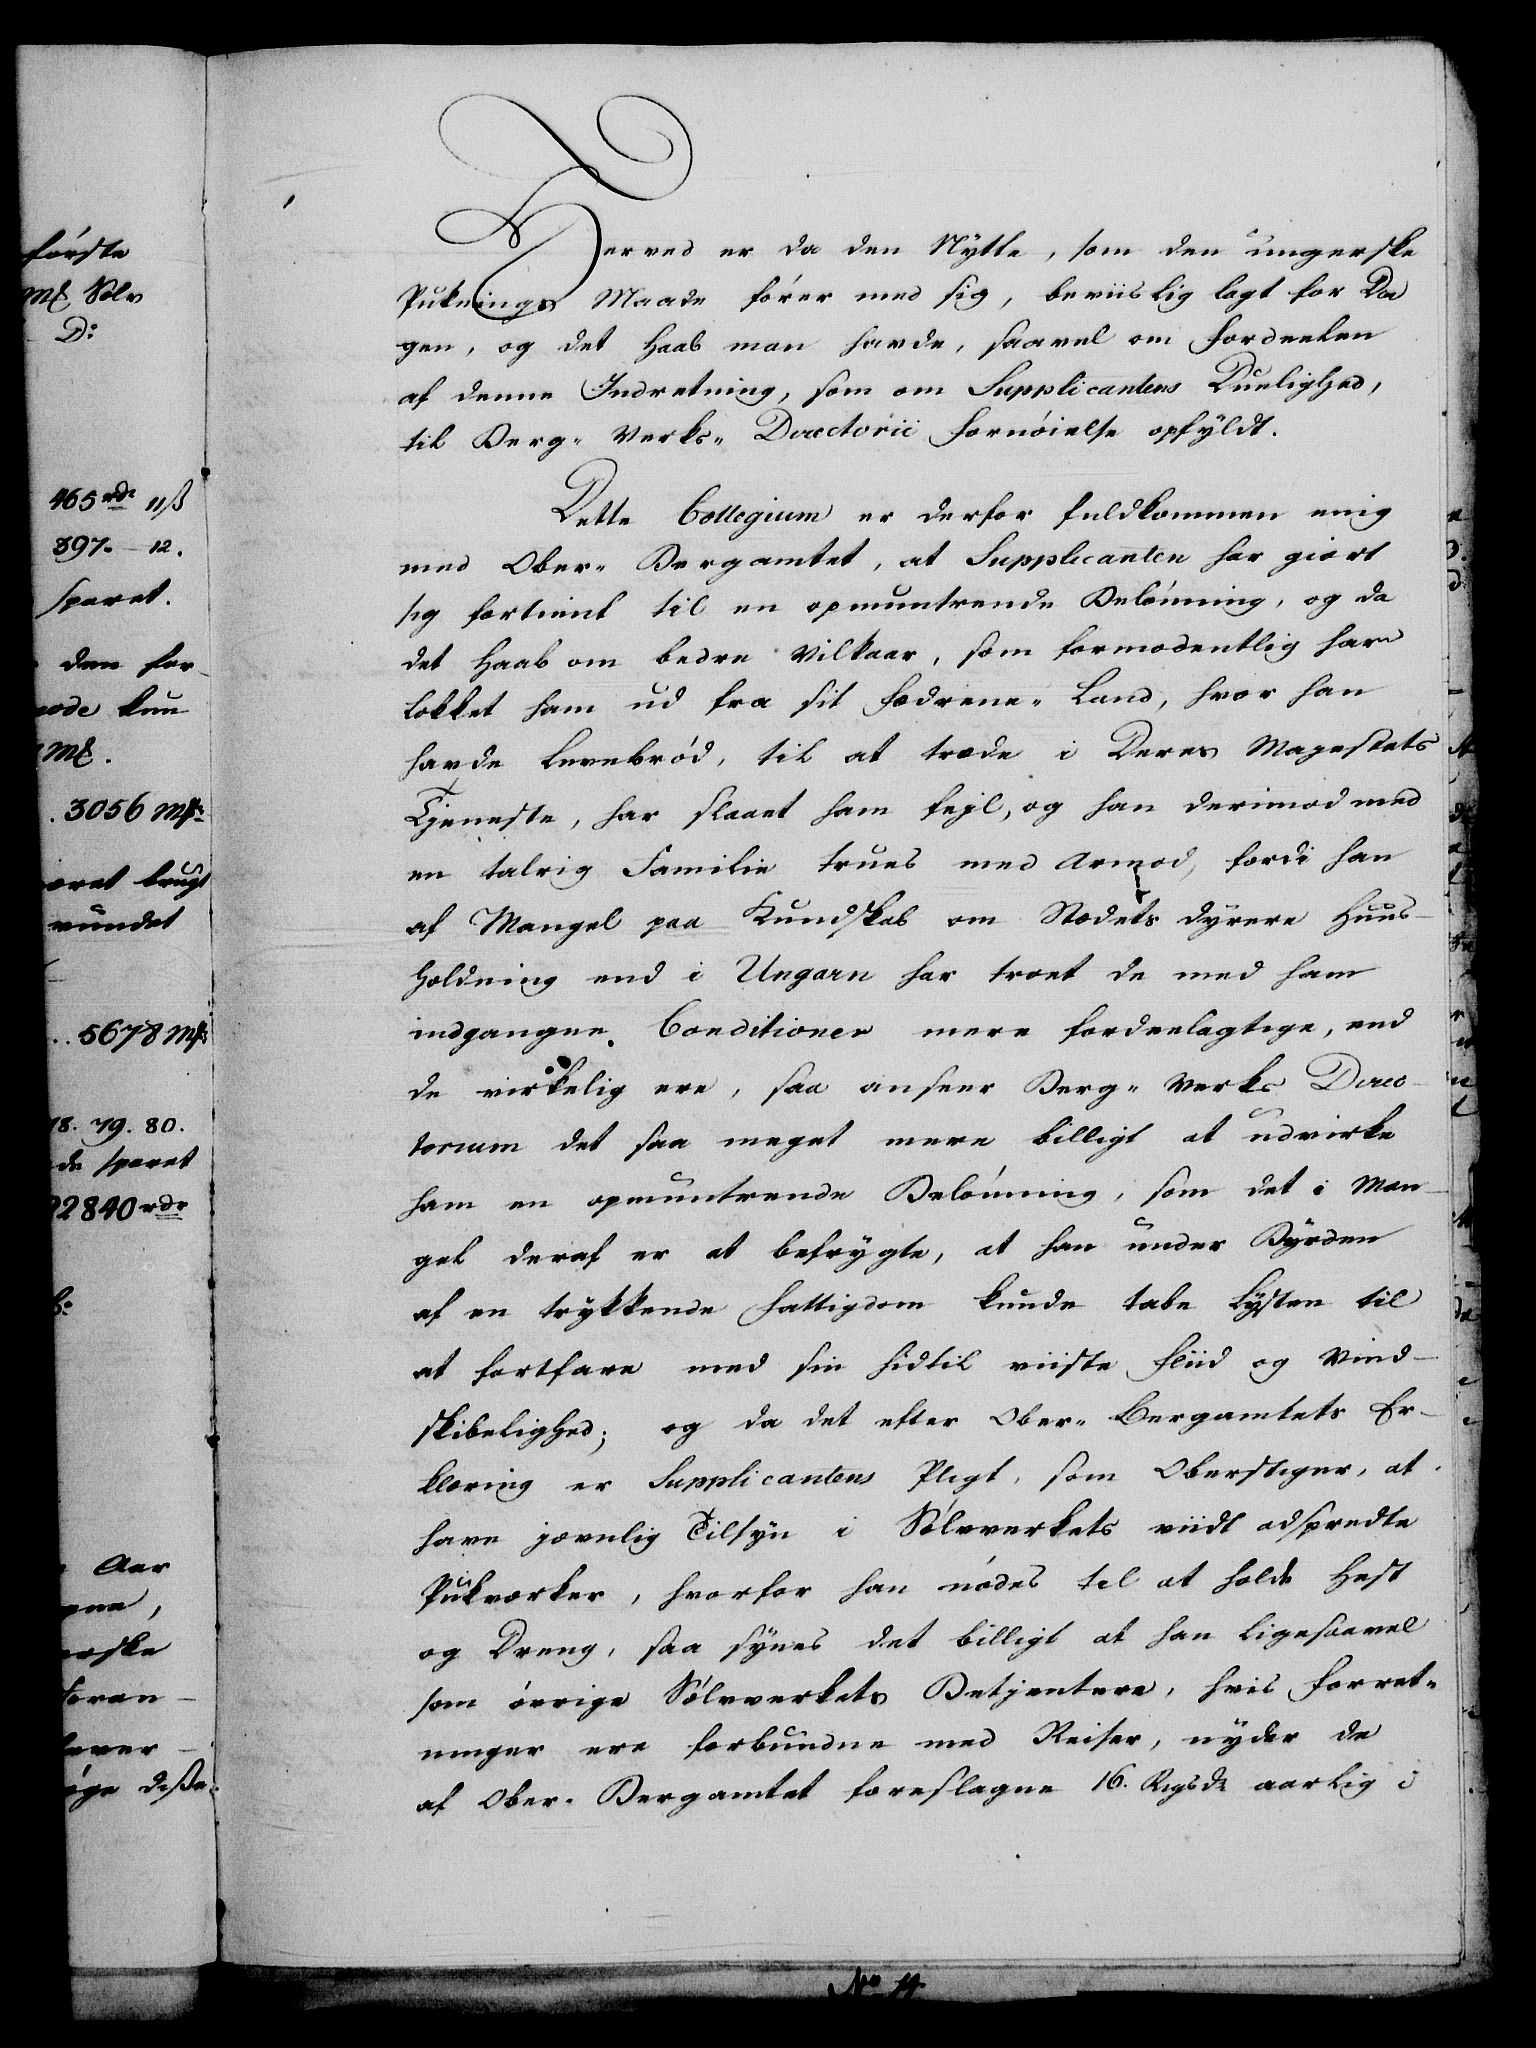 første
M& Sølv
D:
465 rdr 11ß
397. – 12.
sparet.
den for-
kun
M&.
3056 M&:
brugt
5678 M&:
79. 80.
sparet
22840 rdr
Aar
Derved er da den Nytte, som den ungerske
Puknings Maade fører med sig, beviislig lagt for Da
gen, og det Haab man havde, saavel om Fordeelen
af denne Indretning, som om Supplicantens Duelighed,
til Berg- Verks- Directorii Fornøielse opfyldt.
Dette Collegium er derfor fuldkommen enig
med Ober- Bergamtet, at Supplicanten har giort
sig fortient til en opmuntrende Belønning, og da
det Haab om bedre Vilkaar, som formodentlig har
lokket ham ud fra sit Fædrene- Land, hvor han
havde Levebrød, til at træde i Deres Majestets
Tjeneste, har slaaet ham fejl, og han derimod med
en talrig Familie trues med Armod, fordi han
af Mangel paa Kundskab om Stædets dyrere Huus-
holdning end i Ungarn har troet de med ham
indgangne Conditioner mere fordeelagtige, end
de virkelig ere, saa anseer Berg- Verks Direc-
torium det saa meget mere billigt at udvirke
ham en opmuntrende Belønning, som det i Man-
gel deraf er at befrygte, at han under Byrden
af en trykkende Fattigdom kunde tabe Lysten til
at fortfare med sin hidtil viiste Fliid og Vind-
skibelighed; og da det efter Ober- Bergamtets Er-
klæring er Supplicantens Pligt, som Oberstiger, at
have jævnlig Tilsyn i Sølvverkets viidt adspredte
Pukværker, hvorfor han nødes til at holde Hest
og Dreng, saa synes det billigt at han ligesaavel
som øvrige Sølvverkets Betjentere, hvis Forret-
ninger ere forbundne med Reiser, nyder de
af Ober- Bergamtet foreslagne 16. Rigsdr aarlig i
No 14.